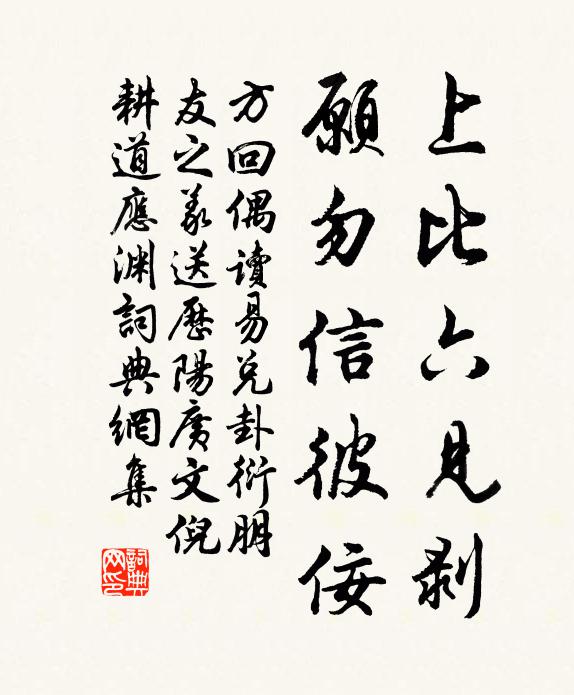 上比六見剥
願勿信彼佞
方回偶讀易兌卦衍朋
友之義送歷陽廣文倪
耕道應淵詞典網集
詞典網印